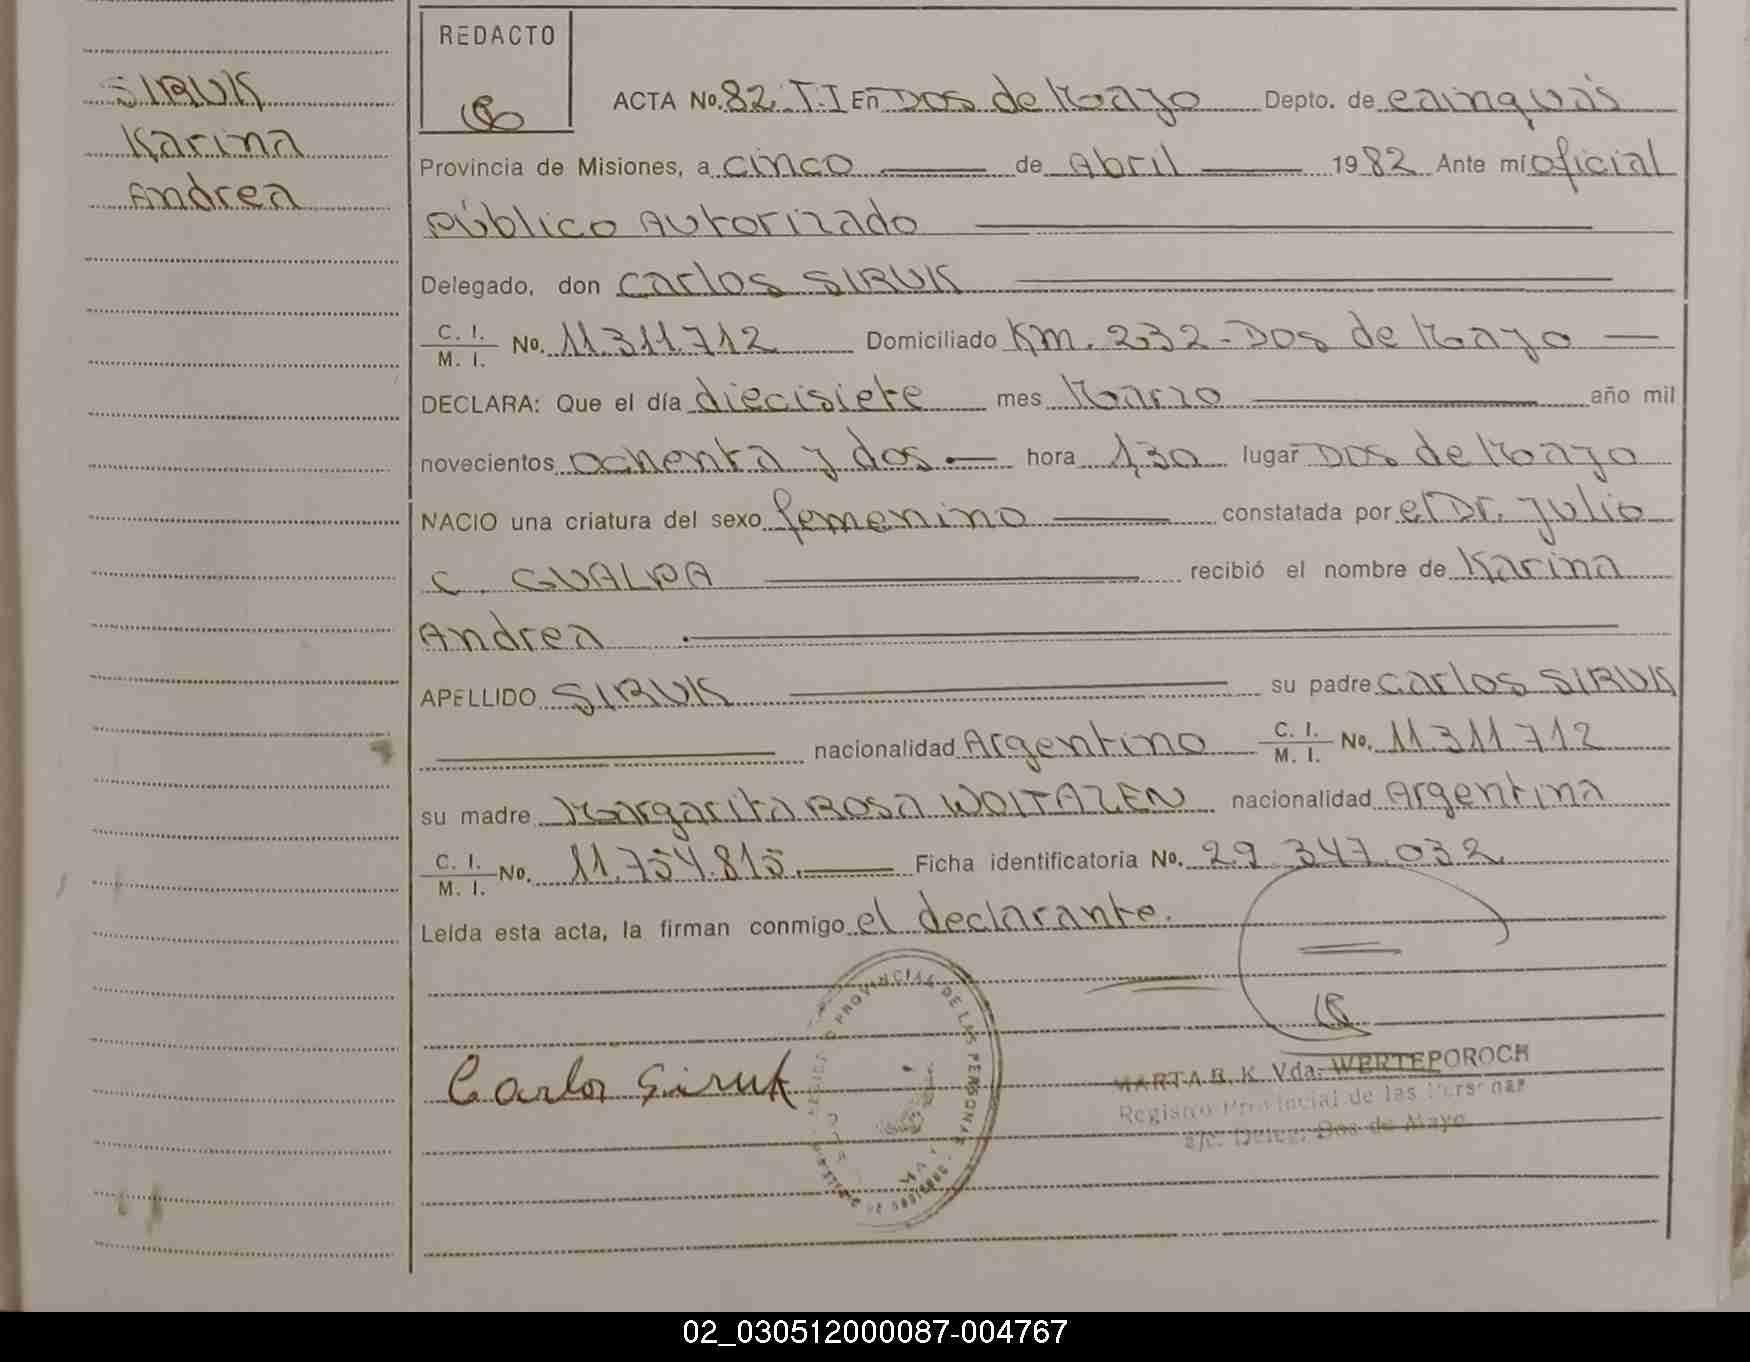 SIRUK
Karina
Andrea
REDACTO
ACTA No. 82 T.I En Dos de Mayo Depto. de cainguás
Provincia de Misiones, a cinco de Abril 1982 Ante mi oficial
Público Autorizado
Delegado, don Carlos SIRUK
C. I. / M. I. No. 11.311.712 Domiciliado Km. 232 - Dos de Mayo —
DECLARA: Que el día diecisiete mes Marzo año mil
novecientos ochenta y dos — hora 1,30 lugar Dos de Mayo
NACIO una criatura del sexo femenino constatada por el Dr. Julio
C. GUALPA recibió el nombre de Karina
Andrea
APELLIDO SIRUK su padre Carlos SIRUK
nacionalidad Argentino C. I. / M. I. No. 11.311.712
su madre Margarita Rosa WOITAZEN nacionalidad Argentina
C. I. / M. I. No. 11.754.815. Ficha identificatoria No. 29.347.032
Leída esta acta, la firman conmigo el declarante.
Carlos Siruk
PROVINCIAL DE LAS PERSONAS
MARTA B. K. Vda. WERTEPOROCH
Registro Provincial de las Personas
a/c. Deleg. Dos de Mayo
02_030512000087-004767